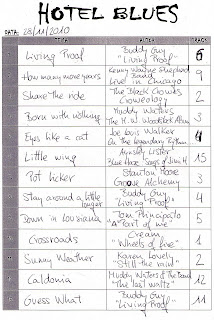 HOTEL BLUES
DATA: 28/11/2010
TEMA ALTRES TRACK
1 Living Proof Buddy Guy "Living Proof" 6
How many more years Kenny Wayne Shepherd Band Live! in Chicago 9
Share the ride The Black Crowes Croweology 2
Born with nothing Muddy Waters The M.W. Woodstock Album 3
Eyes like a cat Joe Louis Walker On the Legendary Rythm 4
Little wing Ainsley Lister Blue Haze: Songs of Jimi H. 15
Pot licker Stanton Moore Groove Alchemy 3
Stay around a little longer Buddy Guy "Living Proof" 4
Down in Louisiana Tom Principato "A Part of me" 5
Crossroads Cream "Wheels of fire" 1
Sunny Weather Karen Lovely "Still the rain" 2
Caldonia Muddy Waters & The Band "The last waltz" 12
Guess What Buddy Guy "Living Proof" 11